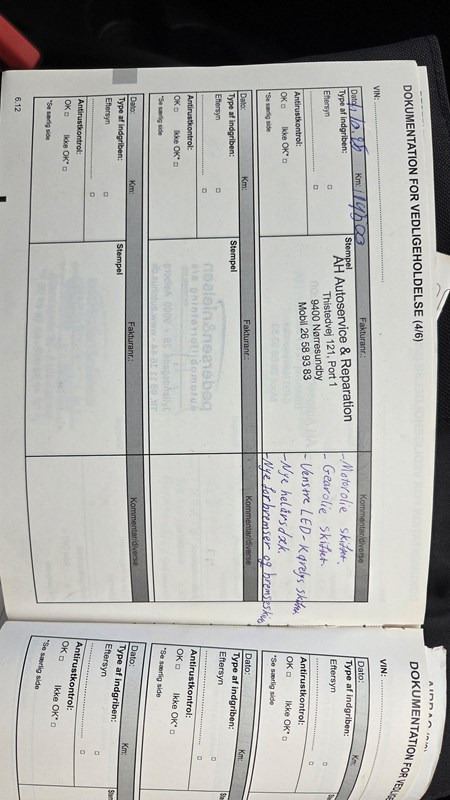 DOKUMENTATION FOR VEDLIGEHOLDELSE (4/6)
VIN:
Dato: 1.10.25 Km: 195000 Fakturanr.: Kommentar/diverse
Type af indgriben:
Eftersyn
Antirustkontrol:
OK Ikke OK*
*Se særlig side
Stempel
AH Autoservice & Reparation
Thistedvej 121, Port 1
9400 Nørresundby
Mobil 26 58 93 83
- Motorolie skiftet.
- Gearolie skiftet.
- Venstre LED-Kørelys skiftet
- Nye helårsdæk.
- Nye forbremser og bremseskiver
Dato: Km: Fakturanr.: Kommentar/diverse
Type af indgriben: Stempel
Eftersyn
Antirustkontrol:
OK Ikke OK*
*Se særlig side
Dato: Km: Fakturanr.: Kommentar/diverse
Type af indgriben: Stempel
Eftersyn
Antirustkontrol:
OK Ikke OK*
*Se særlig side
6.12
DOKUMENTATION FOR
VIN:
Dato: Km:
Type af indgriben:
Eftersyn
Antirustkontrol:
OK Ikke OK*
*Se særlig side
Dato: Km:
Type af indgriben:
Eftersyn
Antirustkontrol:
OK Ikke OK*
*Se særlig side
Dato: Km:
Type af indgriben:
Eftersyn
Antirustkontrol:
OK Ikke OK*
*Se særlig side